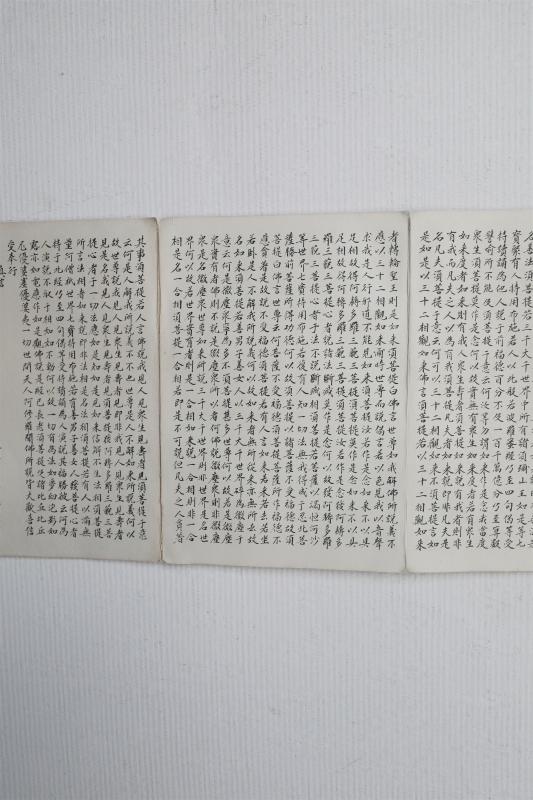 名善法須菩提若三千大千世界中所有諸須彌山王如是等七
寶聚有人持用布施若人以此般若波羅蜜經乃至四句偈等受
持讀誦為他人說於前福德百分不及一百千萬億分乃至算數
譬喻所不能及須菩提於意云何汝等勿謂如來作是念我當度
眾生須菩提莫作是念何以故實無有眾生如來度者若有眾生
如來度者如來則有我人眾生壽者須菩提如來說有我者則非
有我而凡夫之人以為有我須菩提凡夫者如來說即非凡夫是
名凡夫須菩提於意云何可以三十二相觀如來不須菩提言如
是如是以三十二相觀如來佛言須菩提若以三十二相觀如來
者轉輪聖王則是如來須菩提白佛言世尊如我解佛所說義不
應以三十二相觀如來爾時世尊而說偈言若以色見我以音聲
求我是人行邪道不能見如來須菩提汝若作是念如來不以具
足相故得阿耨多羅三藐三菩提須菩提莫作是念如來不以具
足相故得阿耨多羅三藐三菩提須菩提汝若作是念發阿耨多
羅三藐三菩提心者說諸法斷滅莫作是念何以故發阿耨多羅
三藐三菩提心者於法不說斷滅相須菩提若菩薩以滿恒河沙
等世界七寶持用布施若復有人知一切法無我得成於忍此菩
薩勝前菩薩所得功德何以故須菩提以諸菩薩不受福德故須
菩提白佛言世尊云何菩薩不受福德須菩提菩薩所作福德不
應貪著是故說不受福德須菩提若有人言如來若來若去若坐
若臥是人不解我所說義何以故如來者無所從來亦無所去故
名如來須菩提若善男子善女人以三千大千世界碎為微塵於
意云何是微塵眾寧為多不須菩提言甚多世尊何以故若是微塵
眾實有者佛則不說是微塵眾所以者何佛說微塵眾則非微塵
眾是名微塵眾世尊如來所說三千大千世界則非世界是名世
界何以故若世界實有者則是一合相如來說一合相則非一合
相是名一合相須菩提一合相者即是不可說但凡夫之人貪著
其事須菩提若人言佛說我見人見眾生見壽者見須菩提於意
云何是人解我所說義不不也世尊是人不解如來所說義何以
故世尊說我見人見眾生見壽者見即非我見人見眾生見壽者
見是名我見人見眾生見壽者見須菩提發阿耨多羅三藐三菩
提心者於一切法應如是知如是見如是信解不生法相須菩提
所言法相者如來說即非法相是名法相須菩提若有人以滿無
量阿僧祇世界七寶持用布施若有善男子善女人發菩提心者
持於此經乃至四句偈等受持讀誦為人演說其福勝彼云何為
人演說不取於相如如不動何以故一切有為法如夢幻泡影如
露亦如電應作如是觀佛說是經已長老須菩提及諸比丘比丘
尼優婆塞優婆夷一切世間天人阿修羅聞佛所說皆大歡喜信
受奉行
真言